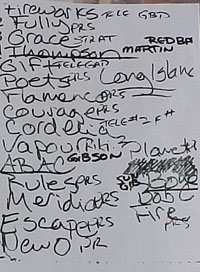 Fireworks TELE GBD
Fully PRS
Grace STRAT RED BA
Thompson MARTIN
Gift TELE GAD
Poets PRS Long Distance
Flamenco PRS
Courage PRS
Cordelia TELE #2 F#
Vapour R.H. Planet
ABAC GIBSON
Rules PRS
Meridian PRS
Escape PRS Fire PRS
New O JR